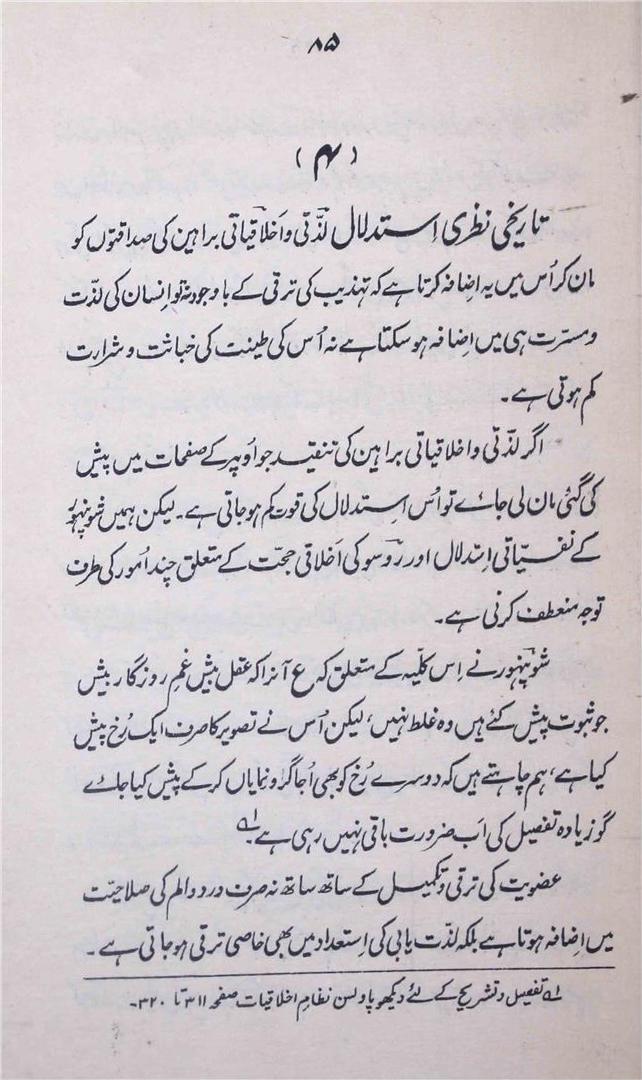 ۸۵
(۴)
تاریخی نظری اِستدلال لذّتی و اَخلاقیاتی براہین کی صداقتوں کو
مان کر اُس میں یہ اِضافہ کرتا ہے کہ تہذیب کی ترقی کے باوجود نہ تو اِنسان کی لذّت
و مسرّت ہی میں اِضافہ ہو سکتا ہے نہ اُس کی طینت کی خباثت و شرارت
کم ہوتی ہے۔
اگر لذّتی و اخلاقیاتی براہین کی تنقید جو اُوپر کے صفحات میں پیش
کی گئی مان لی جائے تو اُس اِستدلال کی قوت کم ہو جاتی ہے۔ لیکن ہمیں شوپنہور
کے نفسیاتی اِستدلال اور روسو کی اَخلاقی حجت کے متعلق چند اُمور کی طرف
توجہ منعطف کرنی ہے۔
شوپنہور نے اِس کلّیہ کے متعلق کہ ع آنرا کہ عقل بیش غمِ روزگار بیش
جو ثبوت پیش کئے ہیں وہ غلط نہیں، لیکن اُس نے تصویر کا صرف ایک رُخ پیش
کیا ہے، ہم چاہتے ہیں کہ دوسرے رُخ کو بھی اُجاگر و نمایاں کر کے پیش کیا جائے
گو زیادہ تفصیل کی اَب ضرورت باقی نہیں رہی ہے۔؎۱
عضویت کی ترقی و تکمیل کے ساتھ ساتھ نہ صرف درد و الم کی صلاحیّت
میں اِضافہ ہوتا ہے بلکہ لذّت یابی کی اِستعداد میں بھی خاصی ترقی ہو جاتی ہے۔
؎۱ تفصیل و تشریح کے لئے دیکھو پاولسن نظامِ اخلاقیات صفحہ ۳۱۱ تا ۳۲۰۔